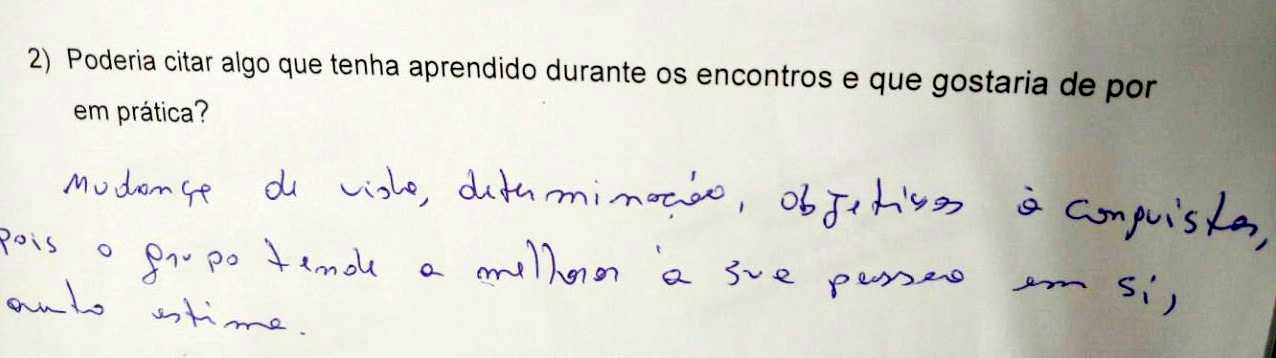 2) Poderia citar algo que tenha aprendido durante os encontros e que gostaria de por
em prática?
Mudança de visão, determinação, objetivos à conquistar,
pois o grupo tende a melhorar a sua pessoa em si,
auto estima.